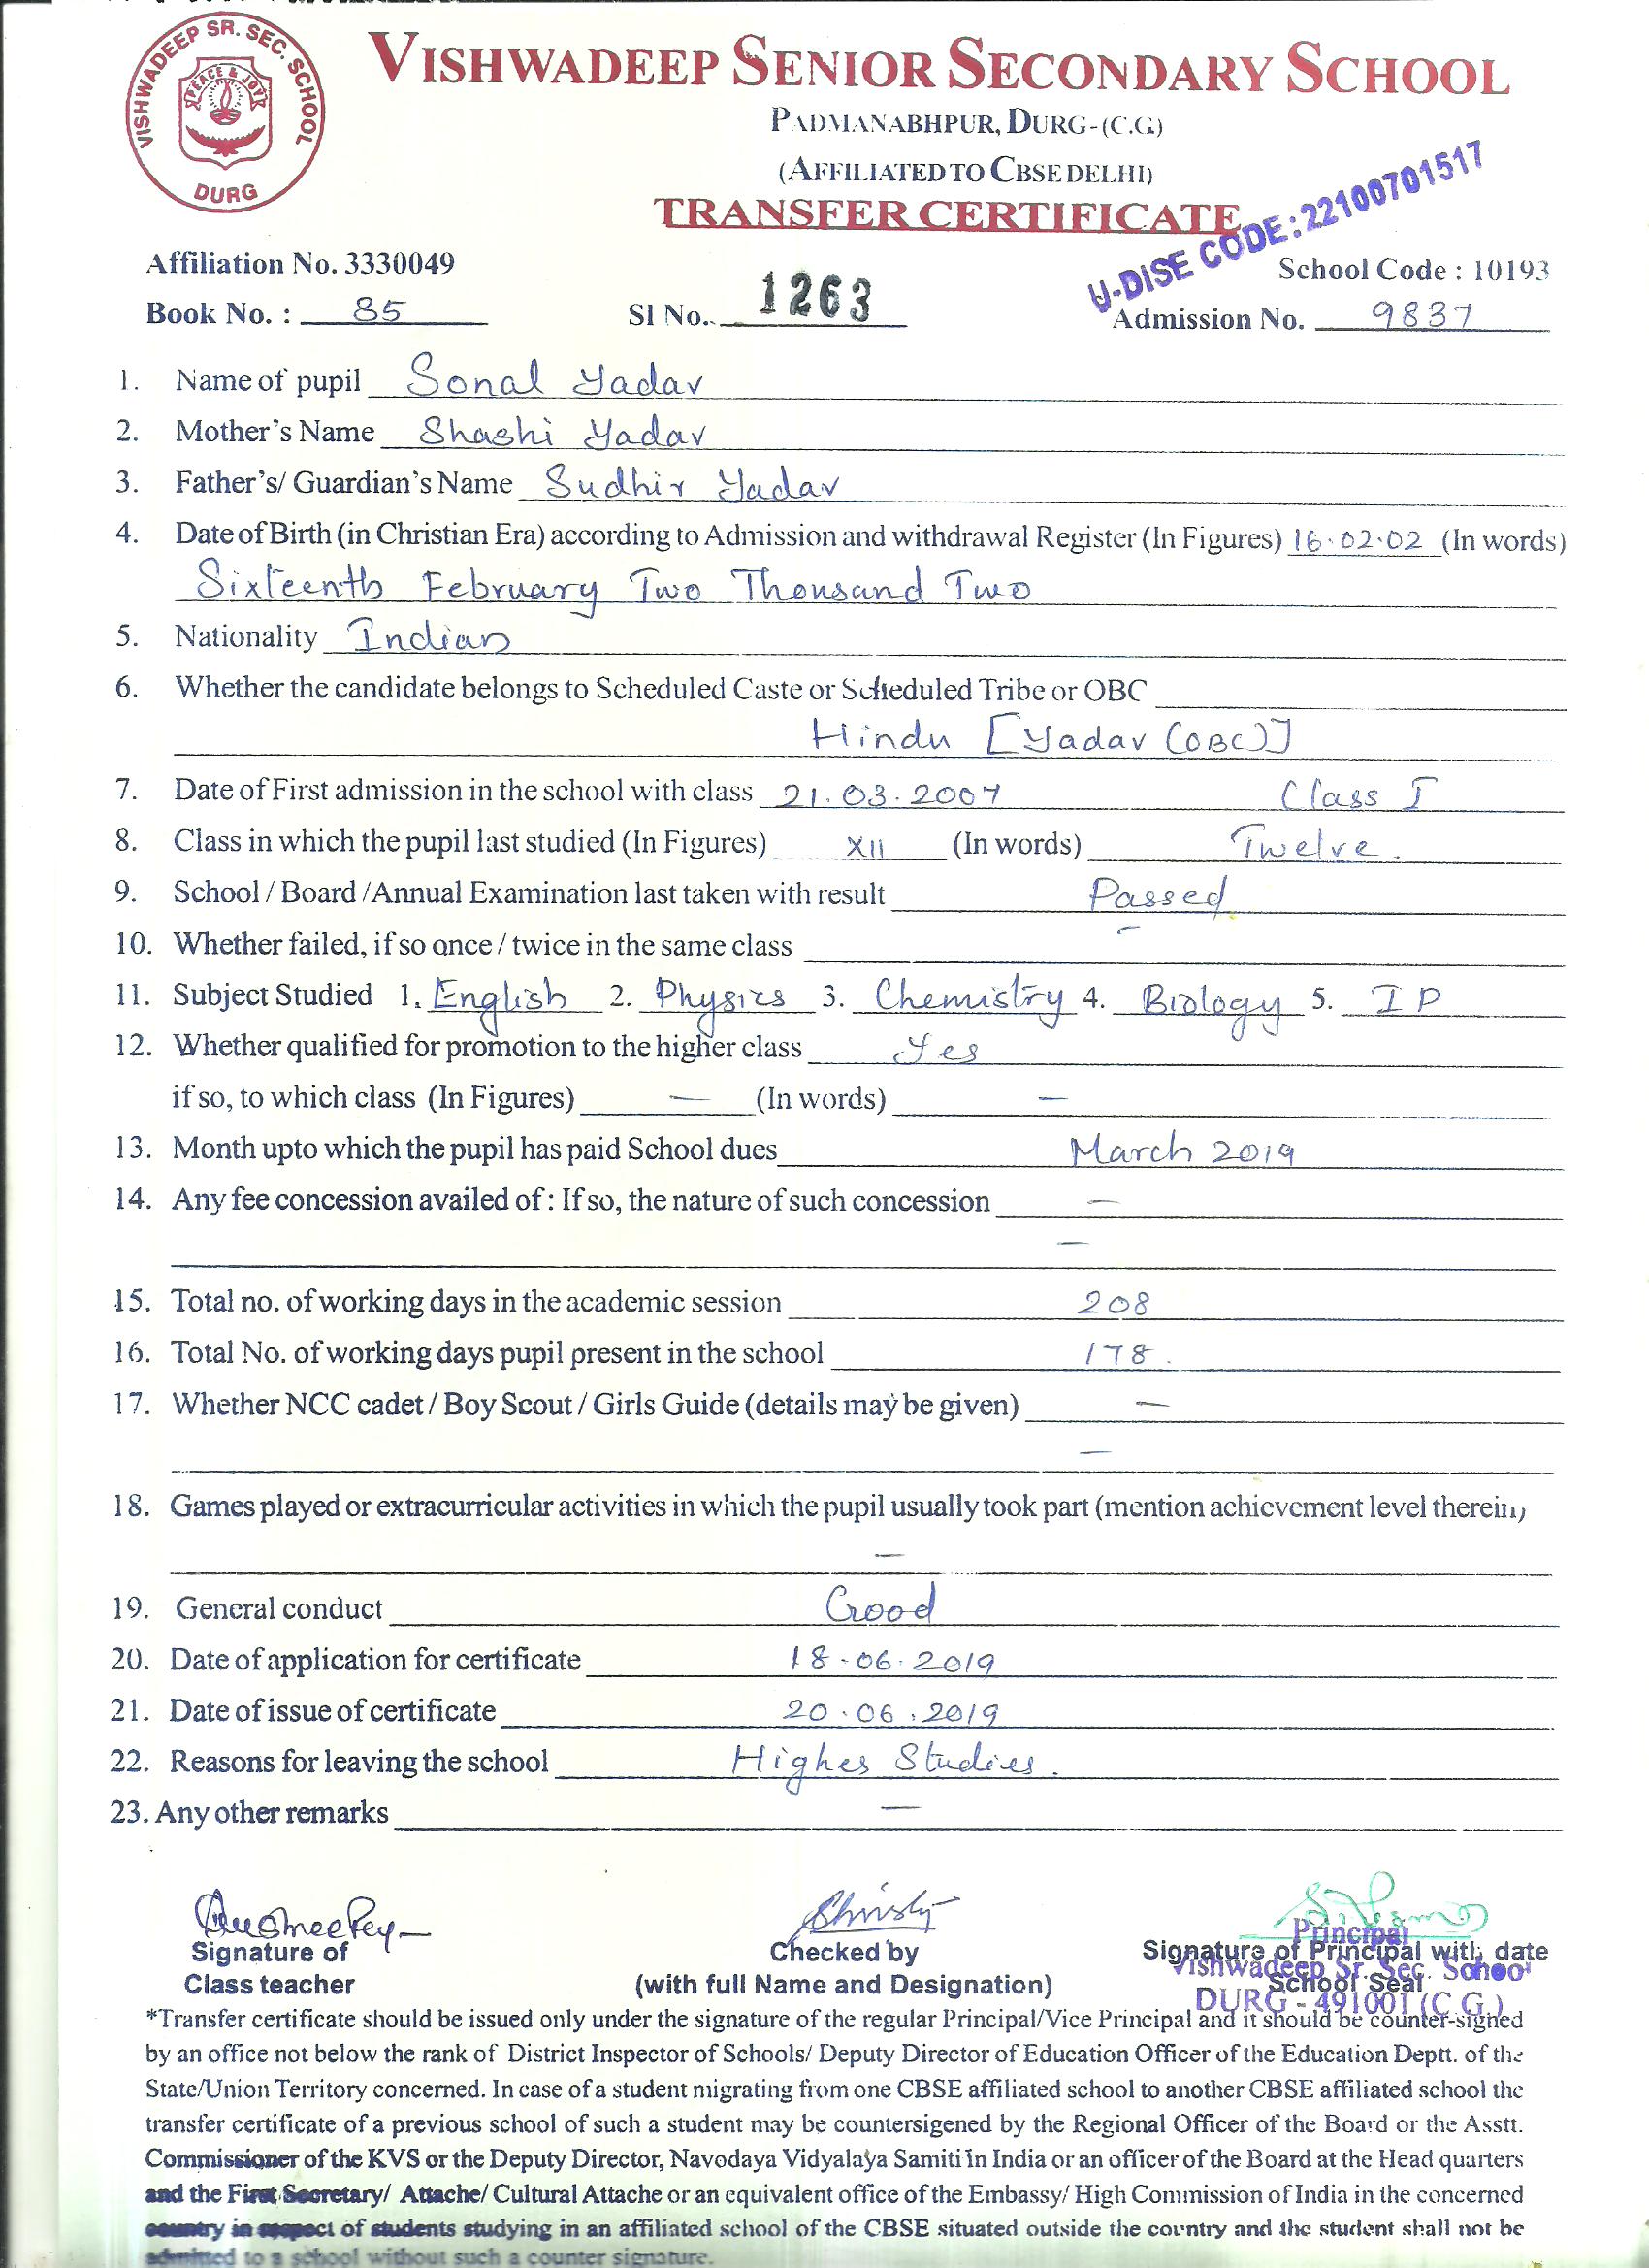 VISHWADEEP SR. SEC. SCHOOL
PEACE & JOY
DURG
VISHWADEEP SENIOR SECONDARY SCHOOL
PADMANABHPUR, DURG-(C.G.)
(AFFILIATED TO CBSE DELHI)
TRANSFER CERTIFICATE
U-DISE CODE:22100701517
Affiliation No. 3330049 School Code : 10193
Book No. : 85 Sl No. 1263 Admission No. 9837
1. Name of pupil Sonal Yadav
2. Mother's Name Shashi Yadav
3. Father's/ Guardian's Name Sudhir Yadav
4. Date of Birth (in Christian Era) according to Admission and withdrawal Register (In Figures) 16.02.02 (In words)
Sixteenth February Two Thousand Two
5. Nationality Indian
6. Whether the candidate belongs to Scheduled Caste or Scheduled Tribe or OBC
Hindu [Yadav (OBC)]
7. Date of First admission in the school with class 21.03.2007 Class I
8. Class in which the pupil last studied (In Figures) XII (In words) Twelve.
9. School / Board /Annual Examination last taken with result Passed
10. Whether failed, if so once / twice in the same class -
11. Subject Studied 1. English 2. Physics 3. Chemistry 4. Biology 5. IP
12. Whether qualified for promotion to the higher class Yes
if so, to which class (In Figures) — (In words) —
13. Month upto which the pupil has paid School dues March 2019
14. Any fee concession availed of : If so, the nature of such concession —
—
15. Total no. of working days in the academic session 208
16. Total No. of working days pupil present in the school 178.
17. Whether NCC cadet / Boy Scout / Girls Guide (details may be given) —
—
18. Games played or extracurricular activities in which the pupil usually took part (mention achievement level therein)
—
19. General conduct Good
20. Date of application for certificate 18-06-2019
21. Date of issue of certificate 20.06.2019
22. Reasons for leaving the school Higher Studies.
23. Any other remarks —
Principal
Signature of Checked by Signature of Principal with date
Vishwadeep Sr. Sec. School
Class teacher (with full Name and Designation) School Seal
DURG - 491001 (C.G.)
*Transfer certificate should be issued only under the signature of the regular Principal/Vice Principal and it should be counter-signed
by an office not below the rank of District Inspector of Schools/ Deputy Director of Education Officer of the Education Deptt. of the
State/Union Territory concerned. In case of a student migrating from one CBSE affiliated school to another CBSE affiliated school the
transfer certificate of a previous school of such a student may be countersigened by the Regional Officer of the Board or the Asstt.
Commissioner of the KVS or the Deputy Director, Navodaya Vidyalaya Samiti in India or an officer of the Board at the Head quarters
and the First Secretary/ Attache/ Cultural Attache or an equivalent office of the Embassy/ High Commission of India in the concerned
country in respect of students studying in an affiliated school of the CBSE situated outside the country and the student shall not be
admitted to a school without such a counter signature.